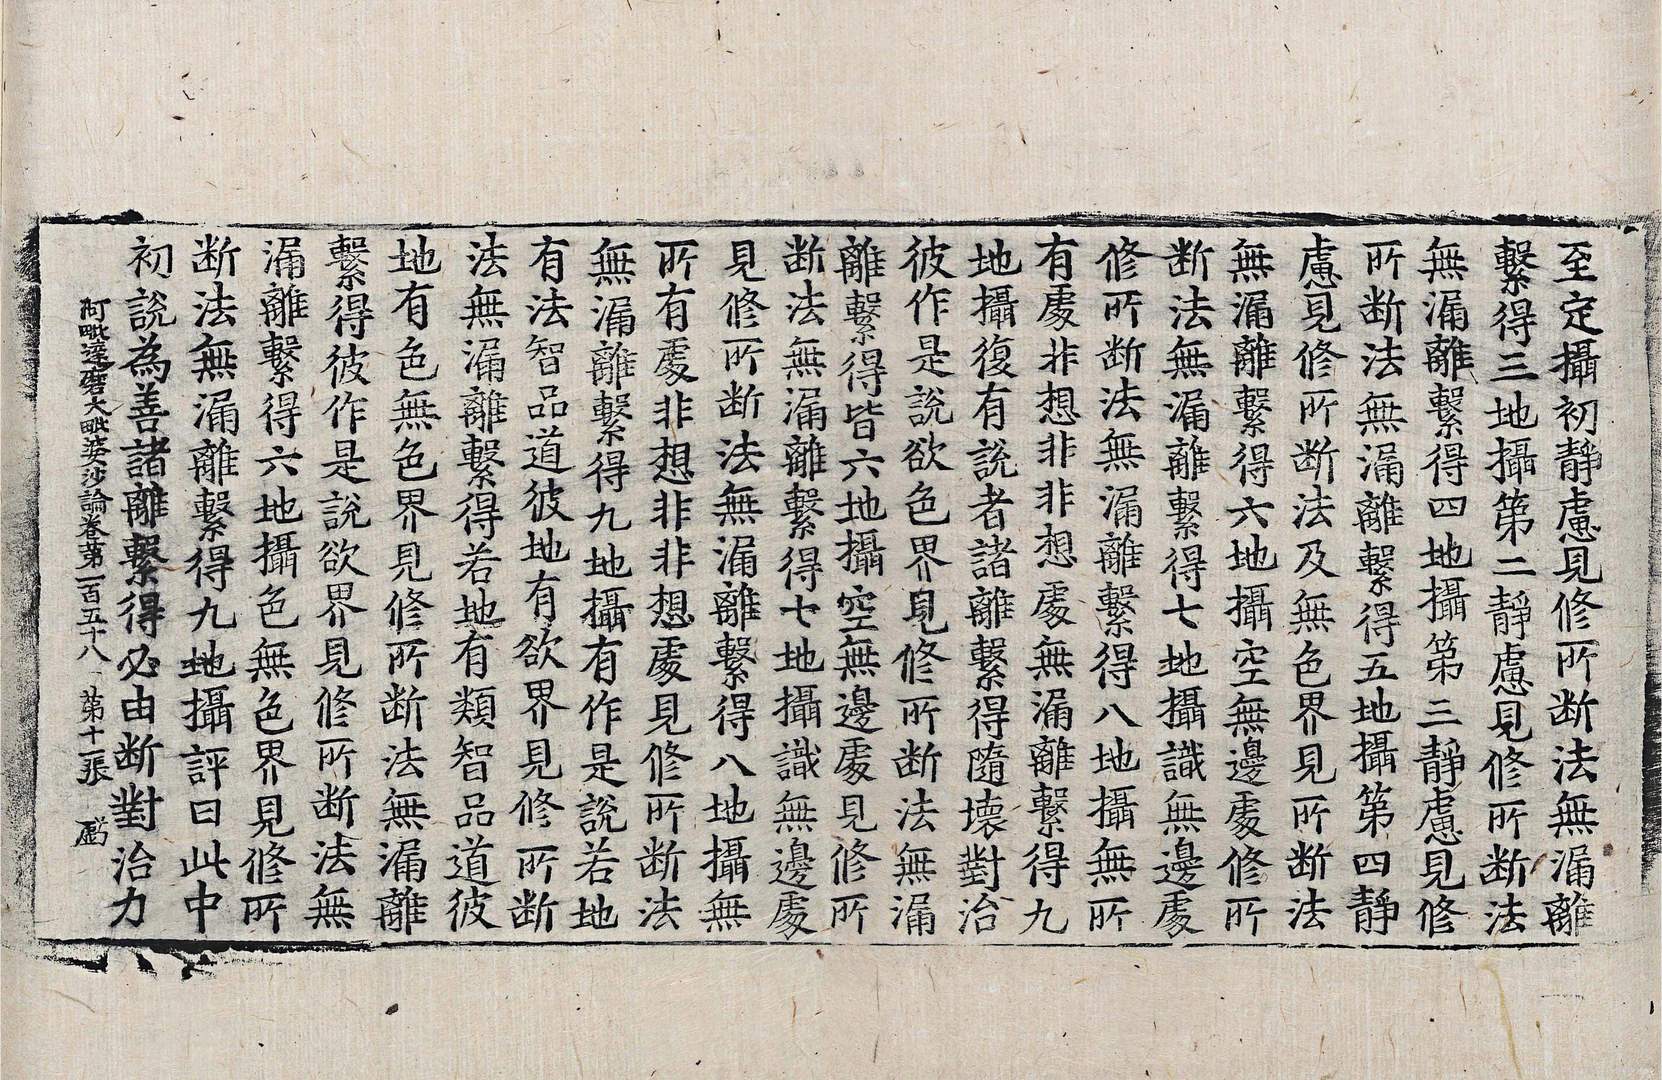 至定攝初靜慮見修所断法無漏離
繫得三地攝第二靜慮見修所断法
無漏離繫得四地攝第三靜慮見修
所断法無漏離繫得五地攝第四靜
慮見修所断法及無色界見所断法
無漏離繫得六地攝空無邊處修所
断法無漏離繫得七地攝識無邊處
修所断法無漏離繫得八地攝無所
有處非想非非想處無漏離繫得九
地攝復有說者諸離繫得隨壞對治
彼作是說欲色界見修所断法無漏
離繫得皆六地攝空無邊處見修所
断法無漏離繫得七地攝識無邊處
見修所断法無漏離繫得八地攝無
所有處非想非非想處見修所断法
無漏離繫得九地攝有作是說若地
有法智品道彼地有欲界見修所断
法無漏離繫得若地有類智品道彼
地有色無色界見修所断法無漏離
繫得彼作是說欲界見修所断法無
漏離繫得六地攝色無色界見修所
断法無漏離繫得九地攝評曰此中
初說為善諸離繫得必由断對治力
阿毗達磨大毗婆沙論卷第一百五十八　第十一張